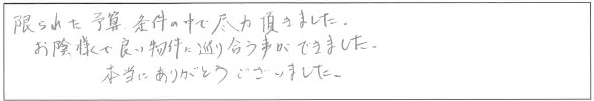 限られた予算 条件の中で尽力頂きました。
お陰様で良い物件に巡り合う事ができました。
本当にありがとうございました。